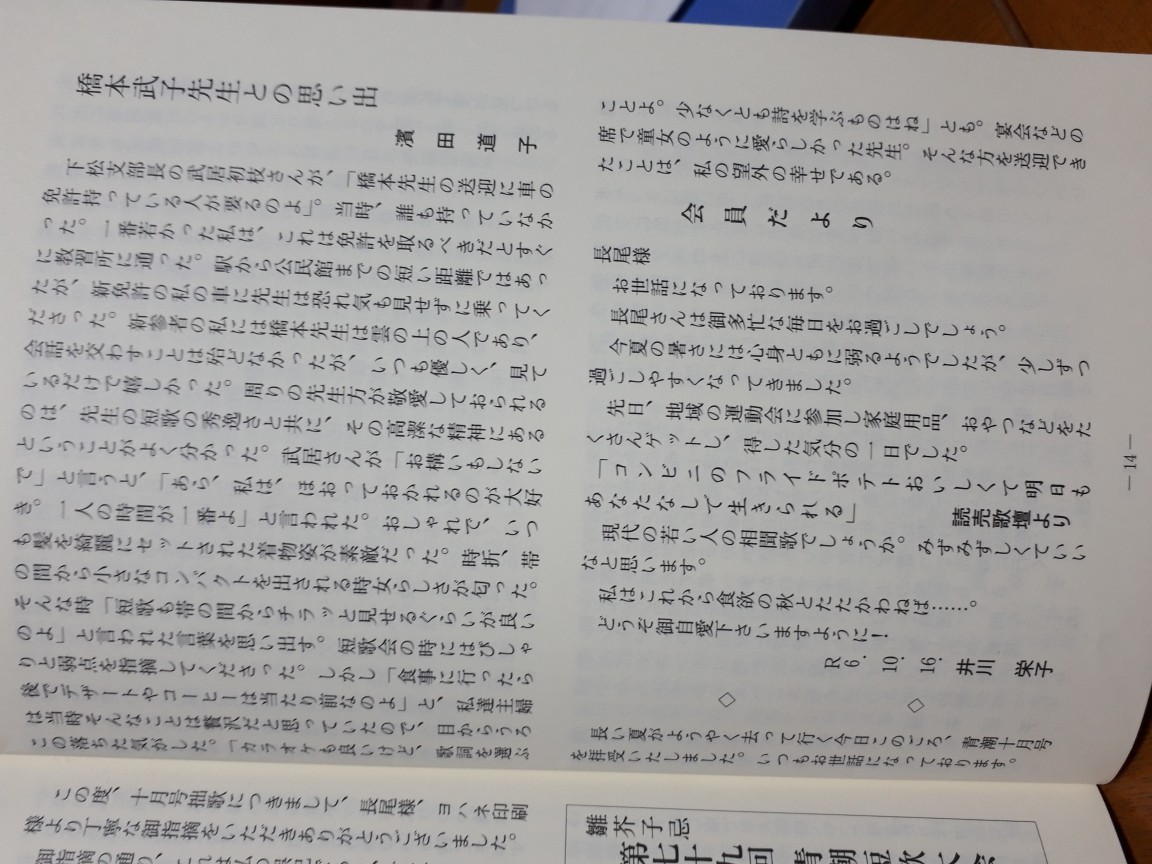 橋本武子先生との思い出
濱田道子
下松支部長の武居初枝さんが、「橋本先生の送迎に車の
免許持っている人が要るのよ」。当時、誰も持っていなか
った。一番若かった私は、これは免許を取るべきだとすぐ
に教習所に通った。駅から公民館までの短い距離ではあっ
たが、新免許の私の車に先生は恐れ気も見せずに乗ってく
ださった。新参者の私には橋本先生は雲の上の人であり、
会話を交わすことは殆どなかったが、いつも優しく、見て
いるだけで嬉しかった。周りの先生方が敬愛しておられる
のは、先生の短歌の秀逸さと共に、その高潔な精神にある
ということがよく分かった。武居さんが「お構いもしない
で」と言うと、「あら、私は、ほおっておかれるのが大好
き。一人の時間が一番よ」と言われた。おしゃれで、いつ
も髪を綺麗にセットされた着物姿が素敵だった。時折、帯
の間から小さなコンパクトを出される時女らしさが匂った。
そんな時「短歌も帯の間からチラッと見せるぐらいが良い
のよ」と言われた言葉を思い出す。短歌会の時にはびしゃ
りと弱点を指摘してくださった。しかし「食事に行ったら
後でデザートやコーヒーは当たり前なのよ」と、私達主婦
は当時そんなことは贅沢だと思っていたので、目からうろ
この落ちた気がした。「カラオケも良いけど、歌詞を選ぶ
ことよ。少なくとも詩を学ぶものはね」とも。宴会などの
席で童女のように愛らしかった先生。そんな方を送迎でき
たことは、私の望外の幸せである。
会員だより
長尾様
お世話になっております。
長尾さんは御多忙な毎日をお過ごしでしょう。
今夏の暑さには心身ともに弱るようでしたが、少しずつ
過ごしやすくなってきました。
先日、地域の運動会に参加し家庭用品、おやつなどをた
くさんゲットし、得した気分の一日でした。
「コンビニのフライドポテトおいしくて明日も
あなたなしで生きられる」 読売歌壇より
現代の若い人の相聞歌でしょうか。みずみずしくていい
なと思います。
私はこれから食欲の秋とたたかわねば……。
どうぞ御自愛下さいますように!
R6.10.16.井川 栄子
◇ ◇
長い夏がようやく去って行く今日このごろ、青潮十月号
を拝受いたしました。いつもお世話になっております。
―14―
この度、十月号拙歌につきまして、長尾様、ヨハネ印刷
様より丁寧な御指摘をいただきありがとうございました。
雛芥子忌